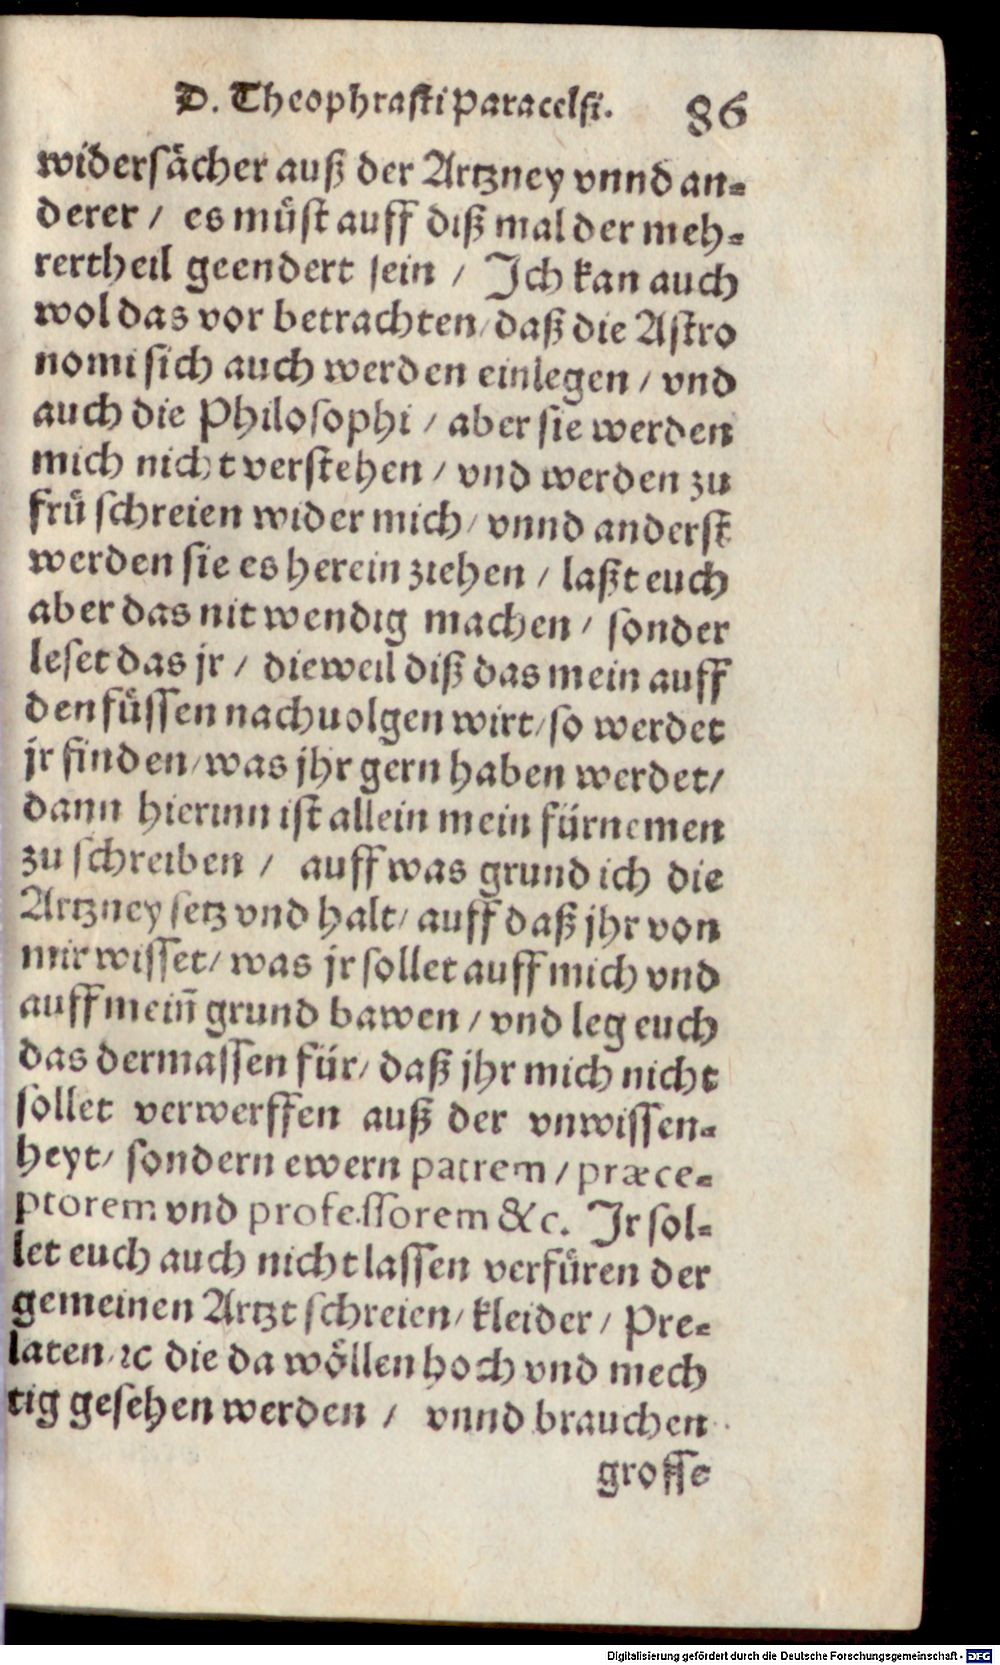 D. Theophrasti Paracelsi. 86
widersächer auß der Artzney vnnd an-
derer / es müst auff diß mal der meh-
rertheil geendert sein / Ich kan auch
wol das vor betrachten / daß die Astro
nomi sich auch werden einlegen / vnd
auch die Philosophi / aber sie werden
mich nicht verstehen / vnd werden zu
frü schreien wider mich / vnnd anderst
werden sie es herein ziehen / laßt euch
aber das nit wendig machen / sonder
leset das jr / dieweil diß das mein auff
den füssen nachuolgen wirt / so werdet
jr finden / was jhr gern haben werdet /
dann hierinn ist allein mein fürnemen
zu schreiben / auff was grund ich die
Artzney setz vnd halt / auff daß jhr von
mir wisset / was jr sollet auff mich vnd
auff meiñ grund bawen / vnd leg euch
das dermassen für / daß jhr mich nicht
sollet verwerffen auß der vnwissen-
heyt / sondern ewern patrem / præce-
ptorem vnd professorem &c. Ir sol-
let euch auch nicht lassen verfüren der
gemeinen Artzt schreien / kleider / Pre-
laten / ꝛc die da wöllen hoch vnd mech
tig gesehen werden / vnnd brauchen
grosse
Digitalisierung gefördert durch die Deutsche Forschungsgemeinschaft - DFG